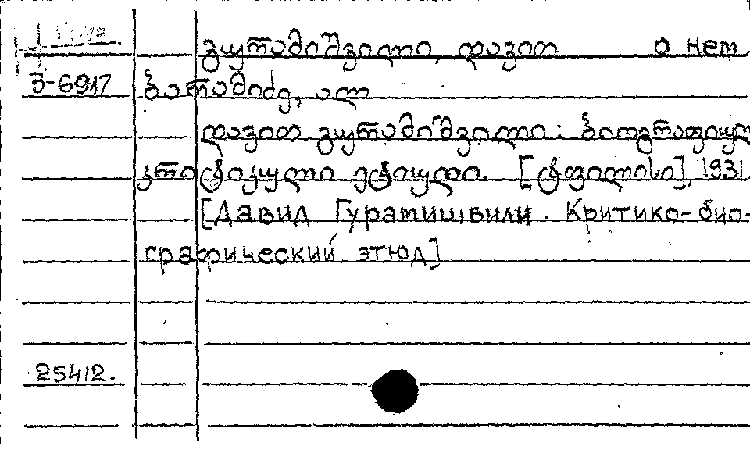 გურამიშვილი, დავით о нем
З-6917 ბარამიძე, ალ
დავით გურამიშვილი: ბიოგრაფიულ
კრიტიკული ეტიუდი. [ტფილისი], 1931.
[Давид Гурамишвили. Критико-био-
графический этюд]
25412.